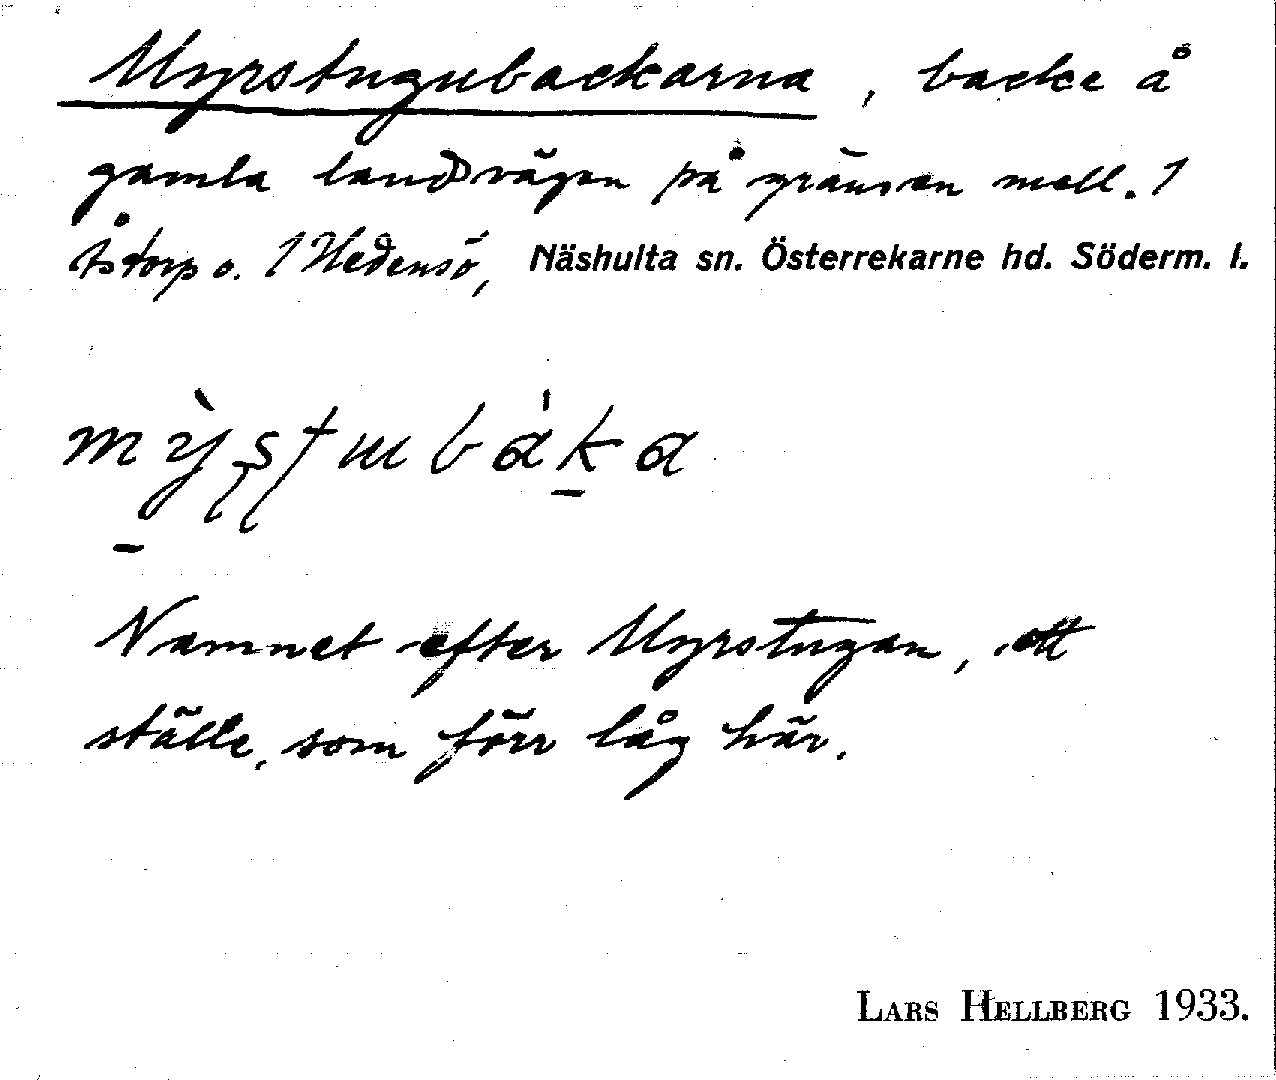 Myrstugubackarna, backe å
gamla landsvägen på gränsen mell. 1
Åstorp o. 1 Hedensö, Näshulta sn. Österrekarne hd. Söderm. l.
Namnet efter Myrstugan, ett
ställe, som förr låg här.
LARS HELLBERG 1933.